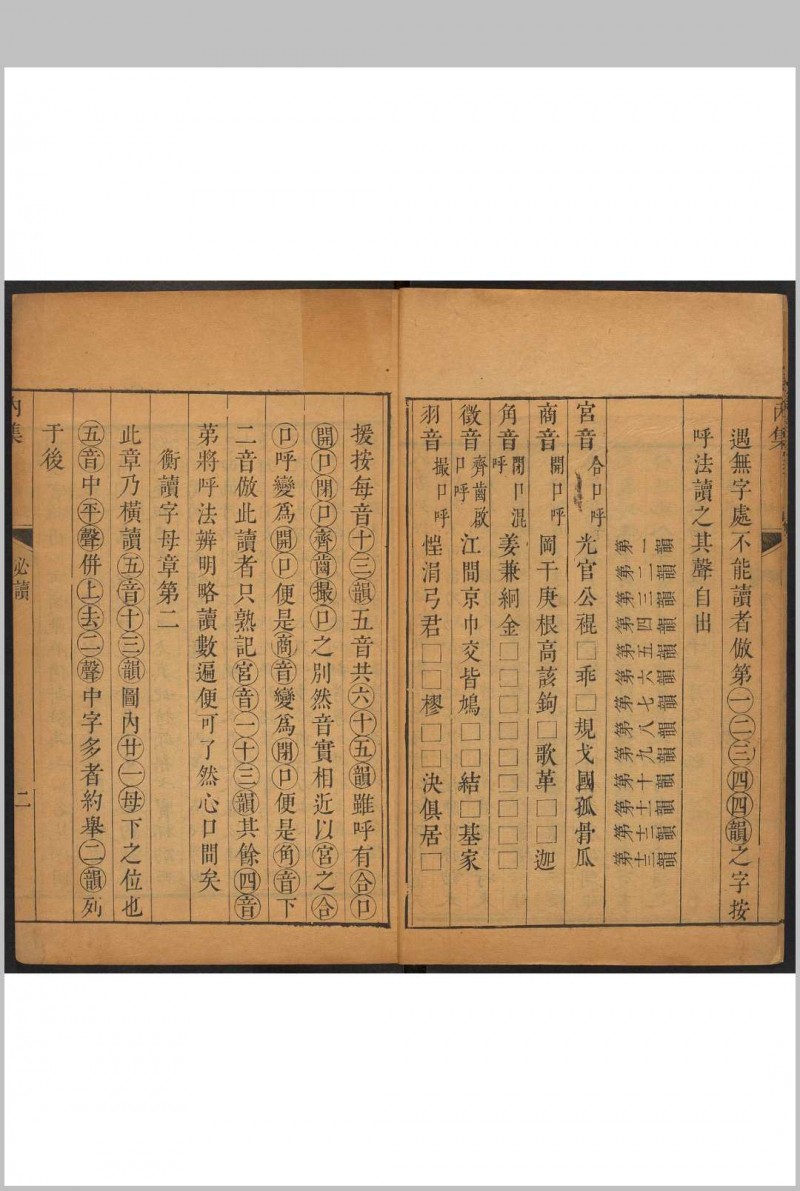 遇無字處不能讀者倣第一二三四四韻之字按
呼法讀之其聲自出
第一韻
第二韻
第三韻
第四韻
第五韻
第六韻
第七韻
第八韻
第九韻
第十韻
第十一韻
第十二韻
第十三韻
宮音合口呼光官公裩□乖□規戈國孤骨瓜
商音開口呼岡干庚根高該鉤□歌革□□迦
角音閉口混呼姜兼絅金□□□□□□□□□
徵音齊齒啟口呼江間京巾交皆鳩□□結□基家
羽音撮口呼惶涓弓君□□樛□□決俱居□
援按每音十三韻五音共六十五韻雖呼有合口
開口閉口齊齒撮口之別然音實相近以宮之合
口呼變爲開口便是商音變爲閉口便是角音下
二音倣此讀者只熟記宮音一十三韻其餘四音
苐將呼法辨明略讀數遍便可了然心口間矣
衡讀字母章第二
此章乃橫讀五音十三韻圖內廿一母下之位也
五音中平聲併上去二聲中字多者約舉二韻列
于後
內集
必讀
二